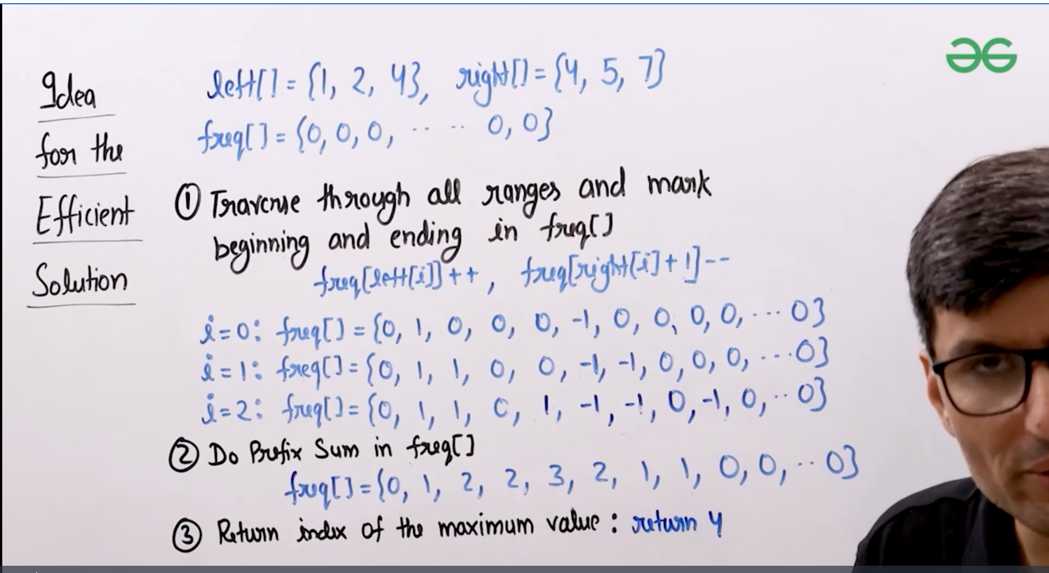 Idea
for the
Efficient
Solution
left[] = {1, 2, 4}, right[] = {4, 5, 7}
freq[] = {0, 0, 0, ···· 0, 0}
① Traverse through all ranges and mark
beginning and ending in freq[]
freq[left[i]]++, freq[right[i]+1]--
i=0: freq[] = {0, 1, 0, 0, 0, -1, 0, 0, 0, 0, ··· 0}
i=1: freq[] = {0, 1, 1, 0, 0, -1, -1, 0, 0, 0, ··· 0}
i=2: freq[] = {0, 1, 1, 0, 1, -1, -1, 0, -1, 0, ·· 0}
② Do Prefix Sum in freq[]
freq[] = {0, 1, 2, 2, 3, 2, 1, 1, 0, 0, ·· 0}
③ Return index of the maximum value : return 4